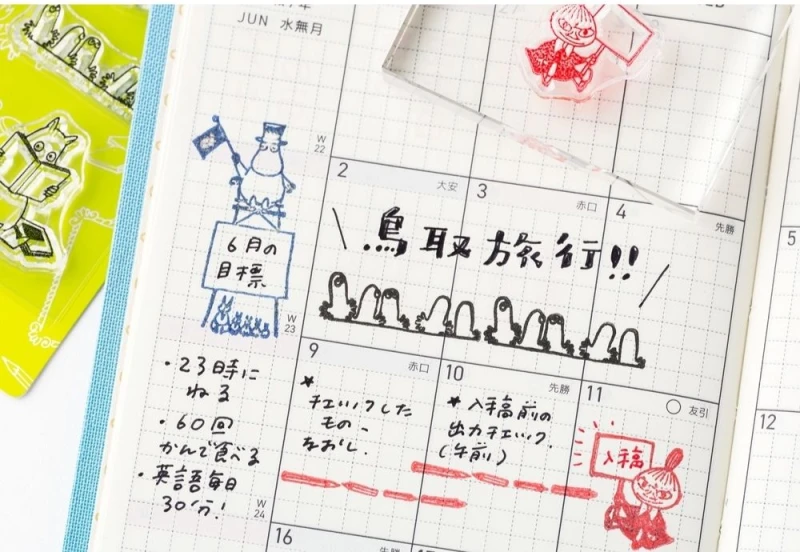 JUN 水無月
W
22
2
大安
3
赤口
4
先勝
5
鳥取旅行!!
6月の
目標
W
23
・23時に
ねる
・60回
かんで食べる
・英語毎日
30分!
W
24
9
赤口
★
チェックした
もの
なおし.
10
先勝
★入稿前の
出力チェック.
(午前)
11
友引
入稿
12
16
先勝